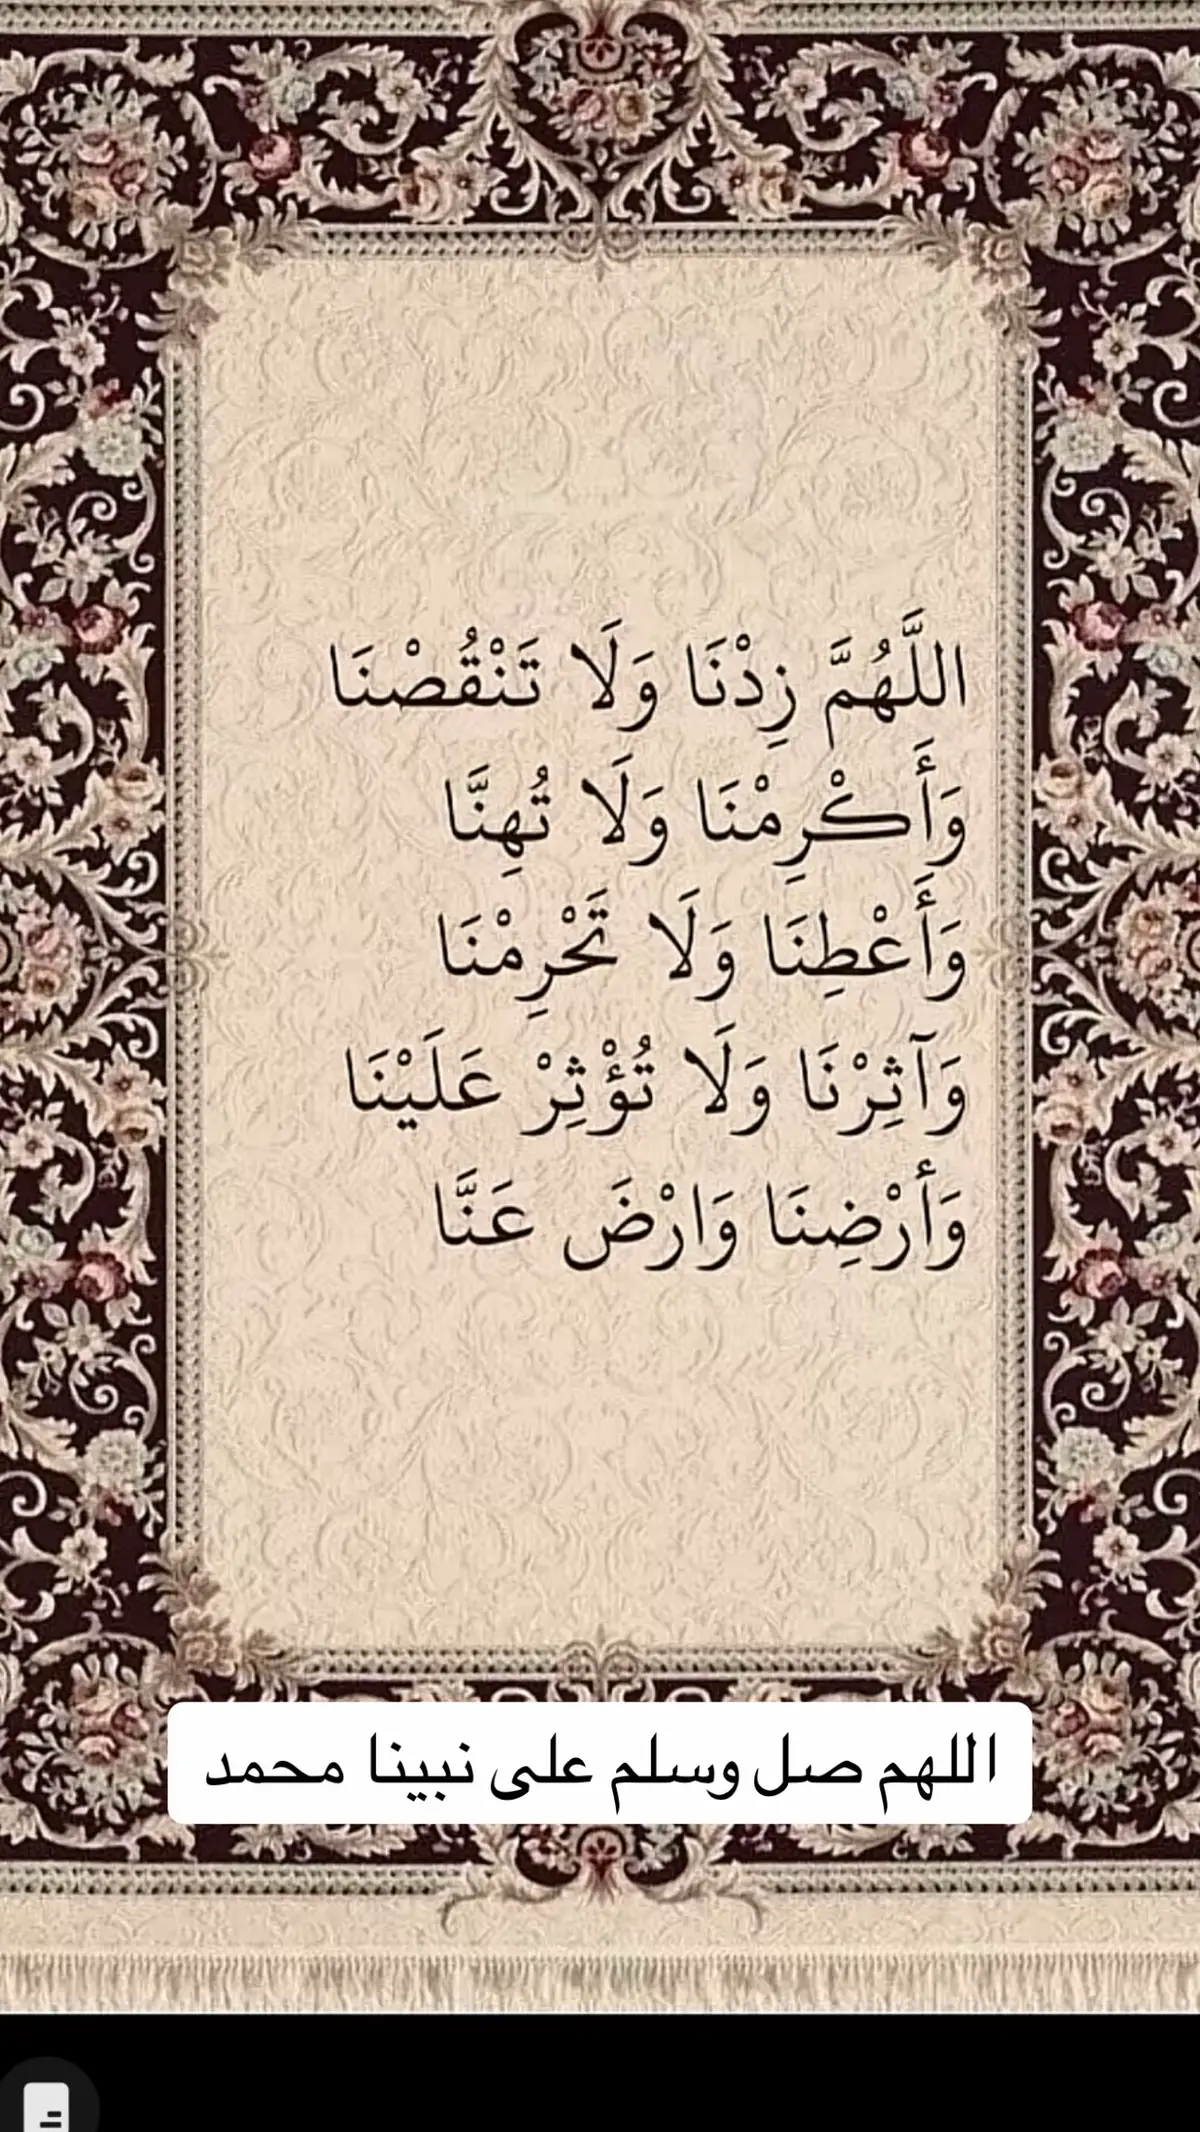 اللَّهُمَّ زِدْنَا وَلَا تَنْقُصْنَا
وَأَكْرِمْنَا وَلَا تُهِنَّا
وَأَعْطِنَا وَلَا تَحْرِمْنَا
وَآثِرْنَا وَلَا تُؤْثِرْ عَلَيْنَا
وَأَرْضِنَا وَارْضَ عَنَّا
اللهم صل وسلم على نبينا محمد